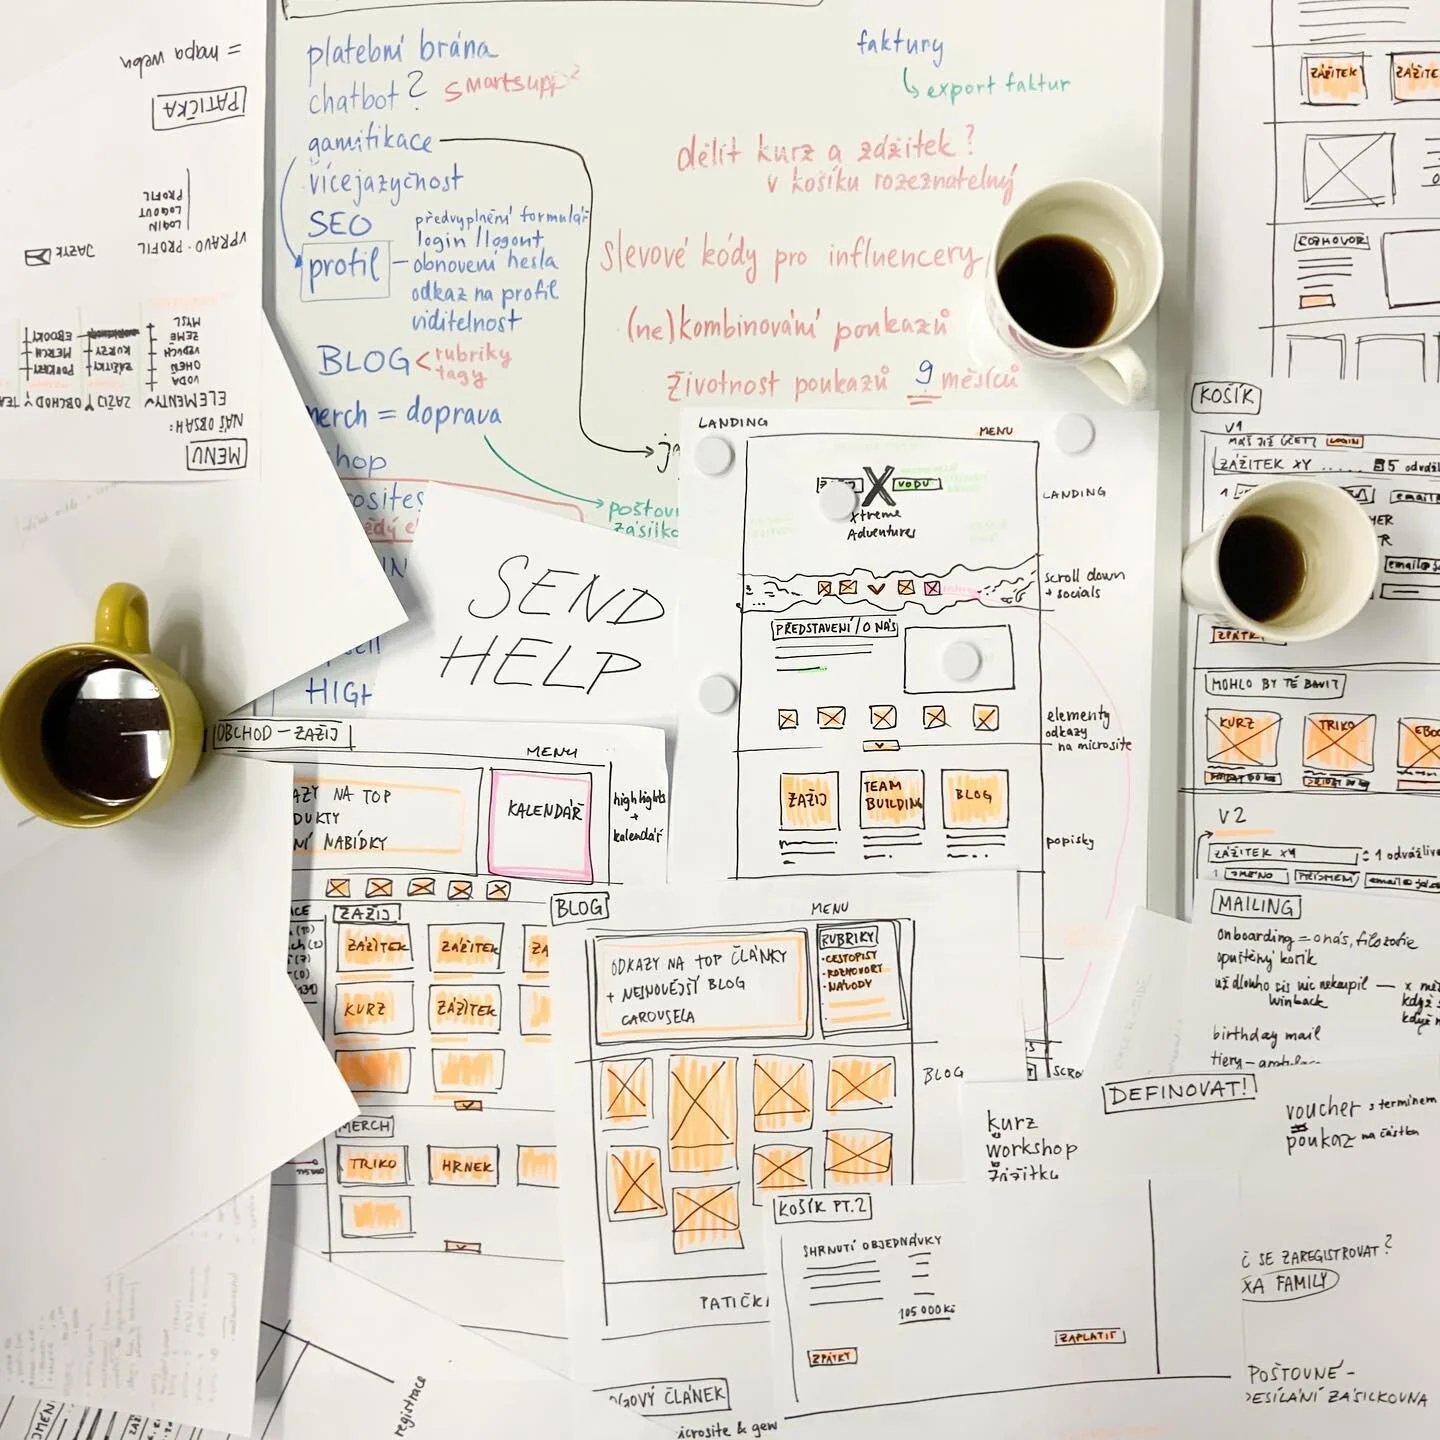 platební brána
chatbot? Smartsupp?
gamifikace
vícejazyčnost
SEO
profil
předvyplnění formulář
login/logout
obnovení hesla
odkaz na profil
viditelnost
BLOG < rubriky
tagy
merch = doprava
shop
faktury
export faktur
dělit kurz a zážitek?
v košíku rozeznatelný
slevové kódy pro influencery
(ne)kombinování poukazů
životnost poukazů 9 měsíců
poštov
zásilko
= mapa webu
PATIČKA
PROFIL
LOGOUT
LOGIN
VPRAVO - PROFIL
JAZYK
EBOOKY
MERCH
POUKAZY
KURZY
ZÁŽITKY
MYSL
ZEMĚ
VZDUCH
OHEŇ
VODA
ELEMENTY
ZAŽIJ
OBCHOD
TEA
NÁŠ OBSAH:
MENU
SEND
HELP
HIGH
LANDING
MENU
X
VODU
Xtreme
Adventures
LANDING
scroll down
+ socials
PŘEDSTAVENÍ / O NÁS
elementy
odkazy
na microsite
ZAŽIJ
TEAM
BUILDING
BLOG
popisky
OBCHOD - ZAŽIJ
MENU
AZY NA TOP
DUKTY
NÍ NABÍDKY
KALENDÁŘ
highlights
+
kalendář
ZAŽIJ
ZÁŽITEK
ZÁŽITEK
ZA
KURZ
ZÁŽITEK
MERCH
TRIKO
HRNEK
BLOG
MENU
ODKAZY NA TOP ČLÁNKY
+ NEJNOVĚJŠÍ BLOG
CAROUSELA
RUBRIKY
• CESTOPISY
• ROZHOVORY
• NÁVODY
BLOG
PATIČK
OGOVÝ ČLÁNEK
icrosite & gew
registrace
ZÁŽITEK
ZÁŽITE
ROZHOVOR
KOŠÍK
V1
MÁŠ JIŽ ÚČET? LOGIN
ZÁŽITEK XY ..... 5 odvážl
ZPÁTKY
MOHLO BY TĚ BAVIT
KURZ
TRIKO
EBOO
V2
ZÁŽITEK XY
1 odvážliv
JMÉNO
PŘÍJMENÍ
MAILING
onboarding = o nás, filozofie
opuštěný košík
už dlouho sis nic nekoupil
winback
když
birthday mail
DEFINOVAT!
kurz
workshop
zážitku
voucher s termínem
poukaz na částku
KOŠÍK PT.2
SHRNUTÍ OBJEDNÁVKY
105 000 Kč
ZPÁTKY
ZAPLATIT
Č SE ZAREGISTROVAT?
XA FAMILY
POŠTOVNÉ -
ESÍLÁNÍ ZÁSILKOVNA